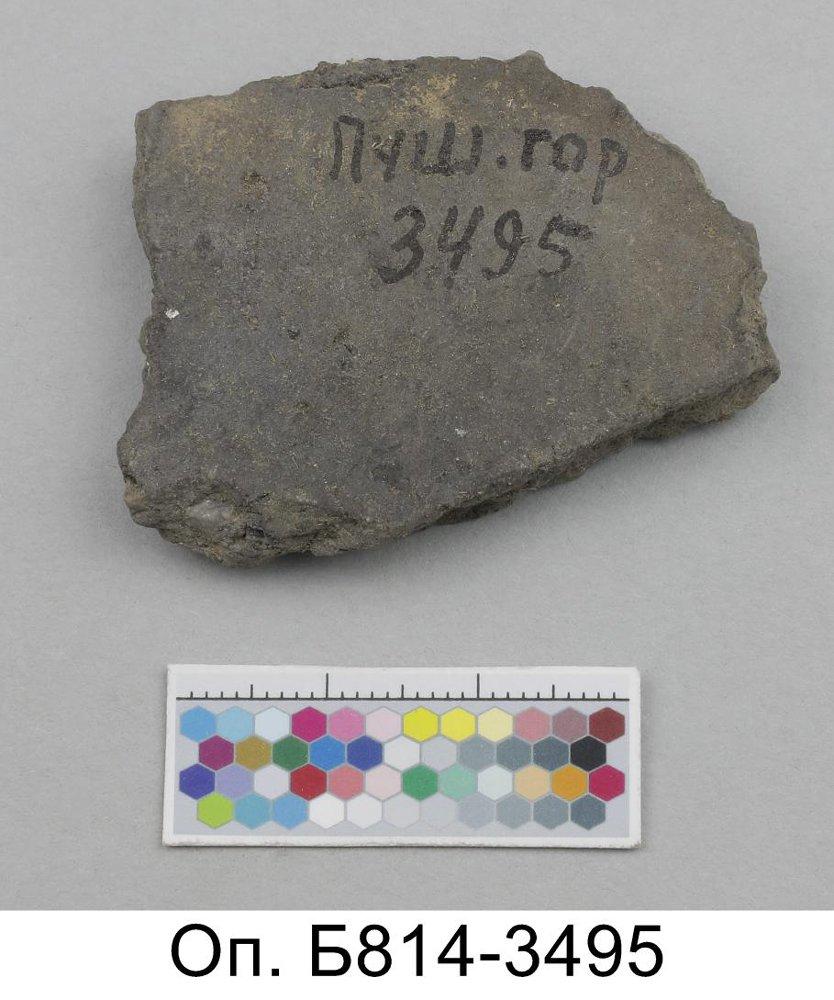 Пуш. гор
3495
Оп. Б814-3495